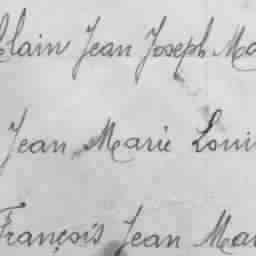 Alain Jean Joseph Ma
Jean Marie Loui
François Jean Mar